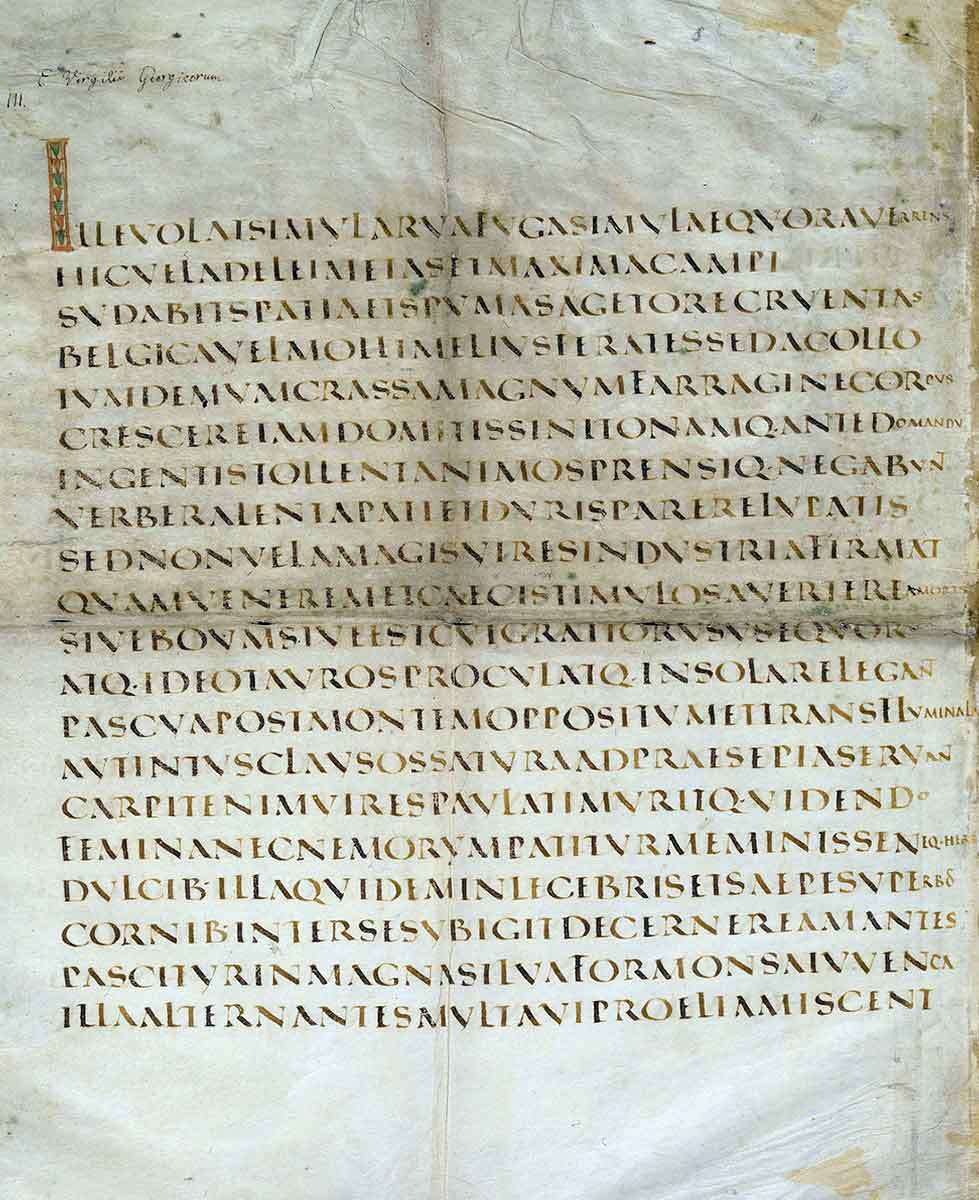 E Virgilii Georgicorum
III.
ILLEVOLATSIMVLARVAFVGASIMVLAEQVORAVERRENS
HICVELADELEIMETASETMAXIMACAMPI
SVDABITSPATIAETSPVMASAGETORECRVENTAS
BELGICAVELMOLLIMELIVSFERATESSEDACOLLO
TVMDEMVMCRASSAMAGNVMFARRAGINECORPVS
CRESCEREIAMDOMITISSINITONAMQ·ANTEDOMANDV
INGENTISTOLLENTANIMOSPRENSIQ·NEGABVN̄
VERBERALENTAPATIETDVRISPARERELVPATIS
SEDNONVELAMAGISVIRESINDVSTRIAFIRMAT
QVAMVENEREMETCAECISTIMVLOSAVERTEREAMORIS
SIVEBOVMSIVEESTCVIGRATIORVSVSEQVOR·
ATQ·IDEOTAVROSPROCVLATQ·INSOLARELEGAN̄
PASCVAPOSTMONTEMOPPOSITVMETTRANSFLVMINALA
AVTINTVSCLAVSOSSATVRAADPRAESEPIASERVAN̄
CARPITENIMVIRESPAVLATIMVRITQ·VIDENDO
FEMINANECNEMORVMPATITVRMEMINISSENEQ·HER
DVLCIB·ILLAQVIDEMINLECEBRISETSAEPESVPERBOS
CORNIB·INTERSESVBIGITDECERNEREAMANTES
PASCITVRINMAGNASILVAFORMONSAIVVENCA
ILLAALTERNANTESMVLTAVIPROELIAMISCENT